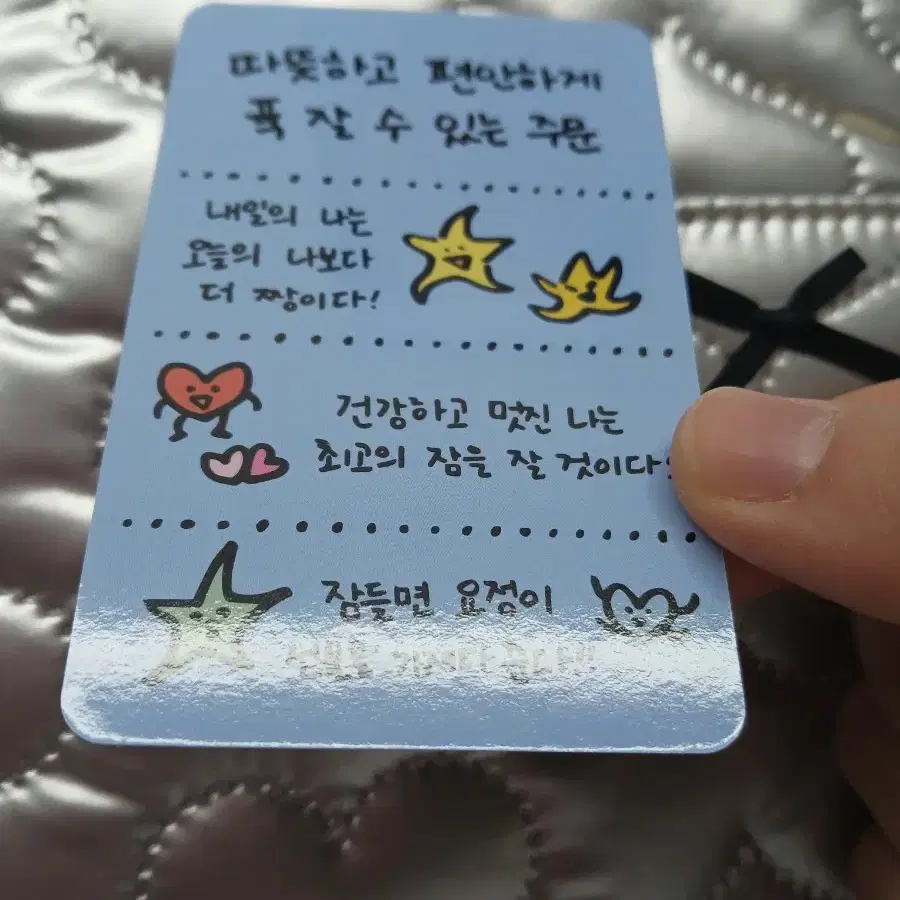 따뜻하고 편안하게
푹 잘 수 있는 주문
내일의 나는
오늘의 나보다
더 짱이다!
건강하고 멋진 나는
최고의 잠을 잘 것이다
잠들면 요정이